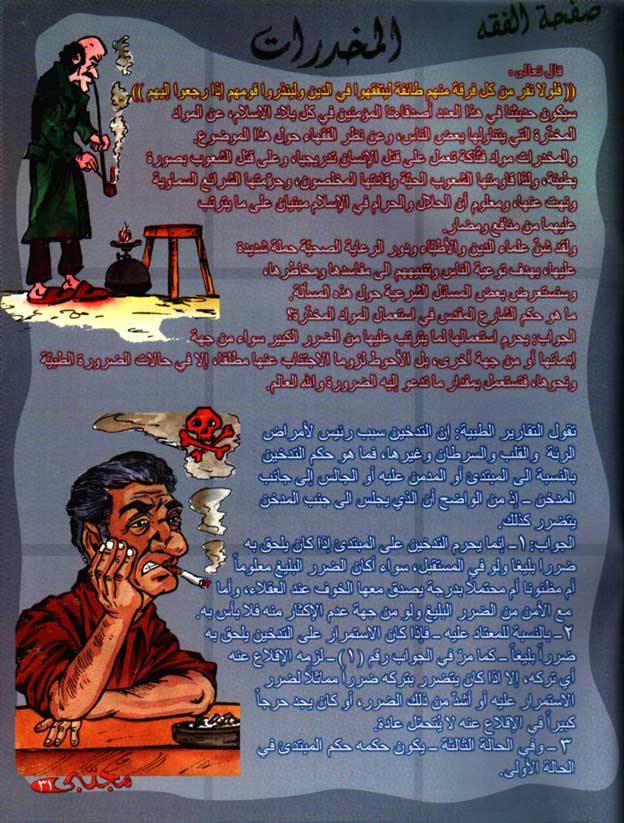 صفحة الفقه
المخدرات
قال تعالى :
(( فلولا نفر من كل فرقة منهم طائفة ليتفقهوا في الدين ولينذروا قومهم إذا رجعوا إليهم ))
سيكون حديثنا في هذا العدد أصدقاءنا المؤمنين في كل بلاد الاسلام، عن المواد
المخدّرة التي يتناولها بعض الناس، وعن نظر الفقهاء حول هذا الموضوع.
والمخدرات مواد فتّاكة تعمل على قتل الإنسان تدريجيا، وعلى قتل الشعوب بصورة
بطيئة، ولذا قاومتها الشعوب الحيّة وقادتها المخلصون، وحرّمتها الشرائع السماوية
ونهت عنها، ومعلوم أن الحلال والحرام في الإسلام مبنيان على ما يترتب
عليهما من منافع ومضار.
ولقد شنّ علماء الدين والأطبّاء ودور الرعاية الصحيّة حملة شديدة
عليها، بهدف توعية الناس وتنبيههم الى مفاسدها ومخاطرها،
وسنستعرض بعض المسائل الشرعية حول هذه المسألة.
ما هو حكم الشارع المقدس في استعمال المواد المخدّرة؟
الجواب: يحرم استعمالها لما يترتب عليها من الضرر الكبير سواء من جهة
إدمانها أو من جهة أخرى، بل الأحوط لزوما الاجتناب عنها مطلقا، إلا في حالات الضرورة الطبيّة
ونحوها، فتستعمل بمقدار ما تدعو إليه الضرورة والله العالم.
تقول التقارير الطبية: إن التدخين سبب رئيس لأمراض
الرئة والقلب والسرطان وغيرها، فما هو حكم التدخين
بالنسبة الى المبتدئ أو المدمن عليه أو الجالس إلى جانب
المدخن ـ إذ من الواضح أن الذي يجلس الى جنب المدخن
يتضرر كذلك.
الجواب: ١ـ إنما يحرم التدخين على المبتدئ إذا كان يلحق به
ضررا بليغا ولو في المستقبل، سواء أكان الضرر البليغ معلوماً
أم مظنونا أم محتملاً بدرجة يصدق معها الخوف عند العقلاء، وأما
مع الأمن من الضرر البليغ ولو من جهة عدم الإكثار منه فلا بأس به.
٢ـ بالنسبة للمعتاد عليه ـ فإذا كان الاستمرار على التدخين يلحق به
ضرراً بليغاً ـ كما مرّ في الجواب رقم (١) ـ لزمه الإقلاع عنه
أي تركه، إلا اذا كان يتضرر بتركه ضرراً مماثلاً لضرر
الاستمرار عليه أو أشدّ من ذلك الضرر، أو كان يجد حرجاً
كبيراً في الإقلاع عنه لا يُتحمّل عادة.
٣ ـ وفي الحالة الثالثة ـ يكون حكمه حكم المبتدئ في
الحالة الأولى.
مجتبى ٣١